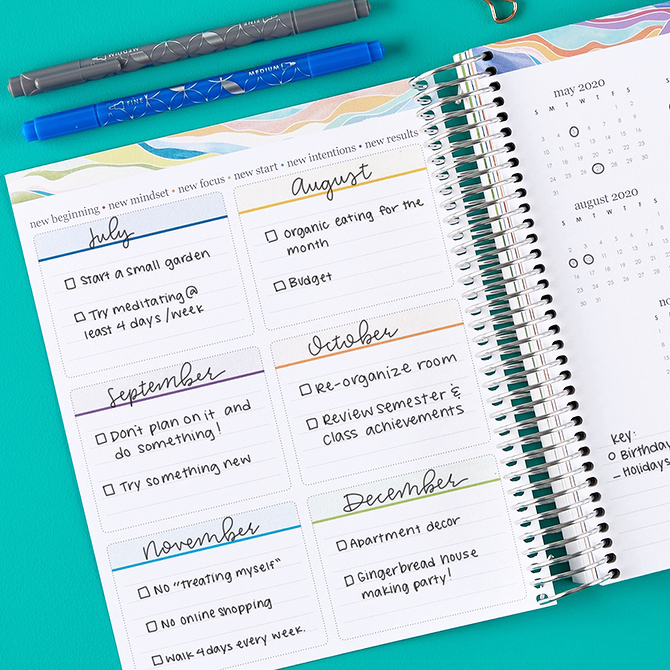 FINE MEDIUM
FINE MEDIUM
new beginning • new mindset • new focus • new start • new intentions • new results
July
☐ Start a small garden
☐ Try meditating @
least 4 days /week
August
☐ Organic eating for the
month
☐ Budget
September
☐ Don't plan on it and
do something!
☐ Try something new
October
☐ Re-organize room
☐ Review semester &
class achievements
November
☐ No "treating myself"
☐ No online shopping
☐ Walk 4 days every week.
December
☐ Apartment decor
☐ Gingerbread house
making party!
may 2020
S M T W T F S
august 2020
S M T W T F S
Key:
o Birthday
– Holidays